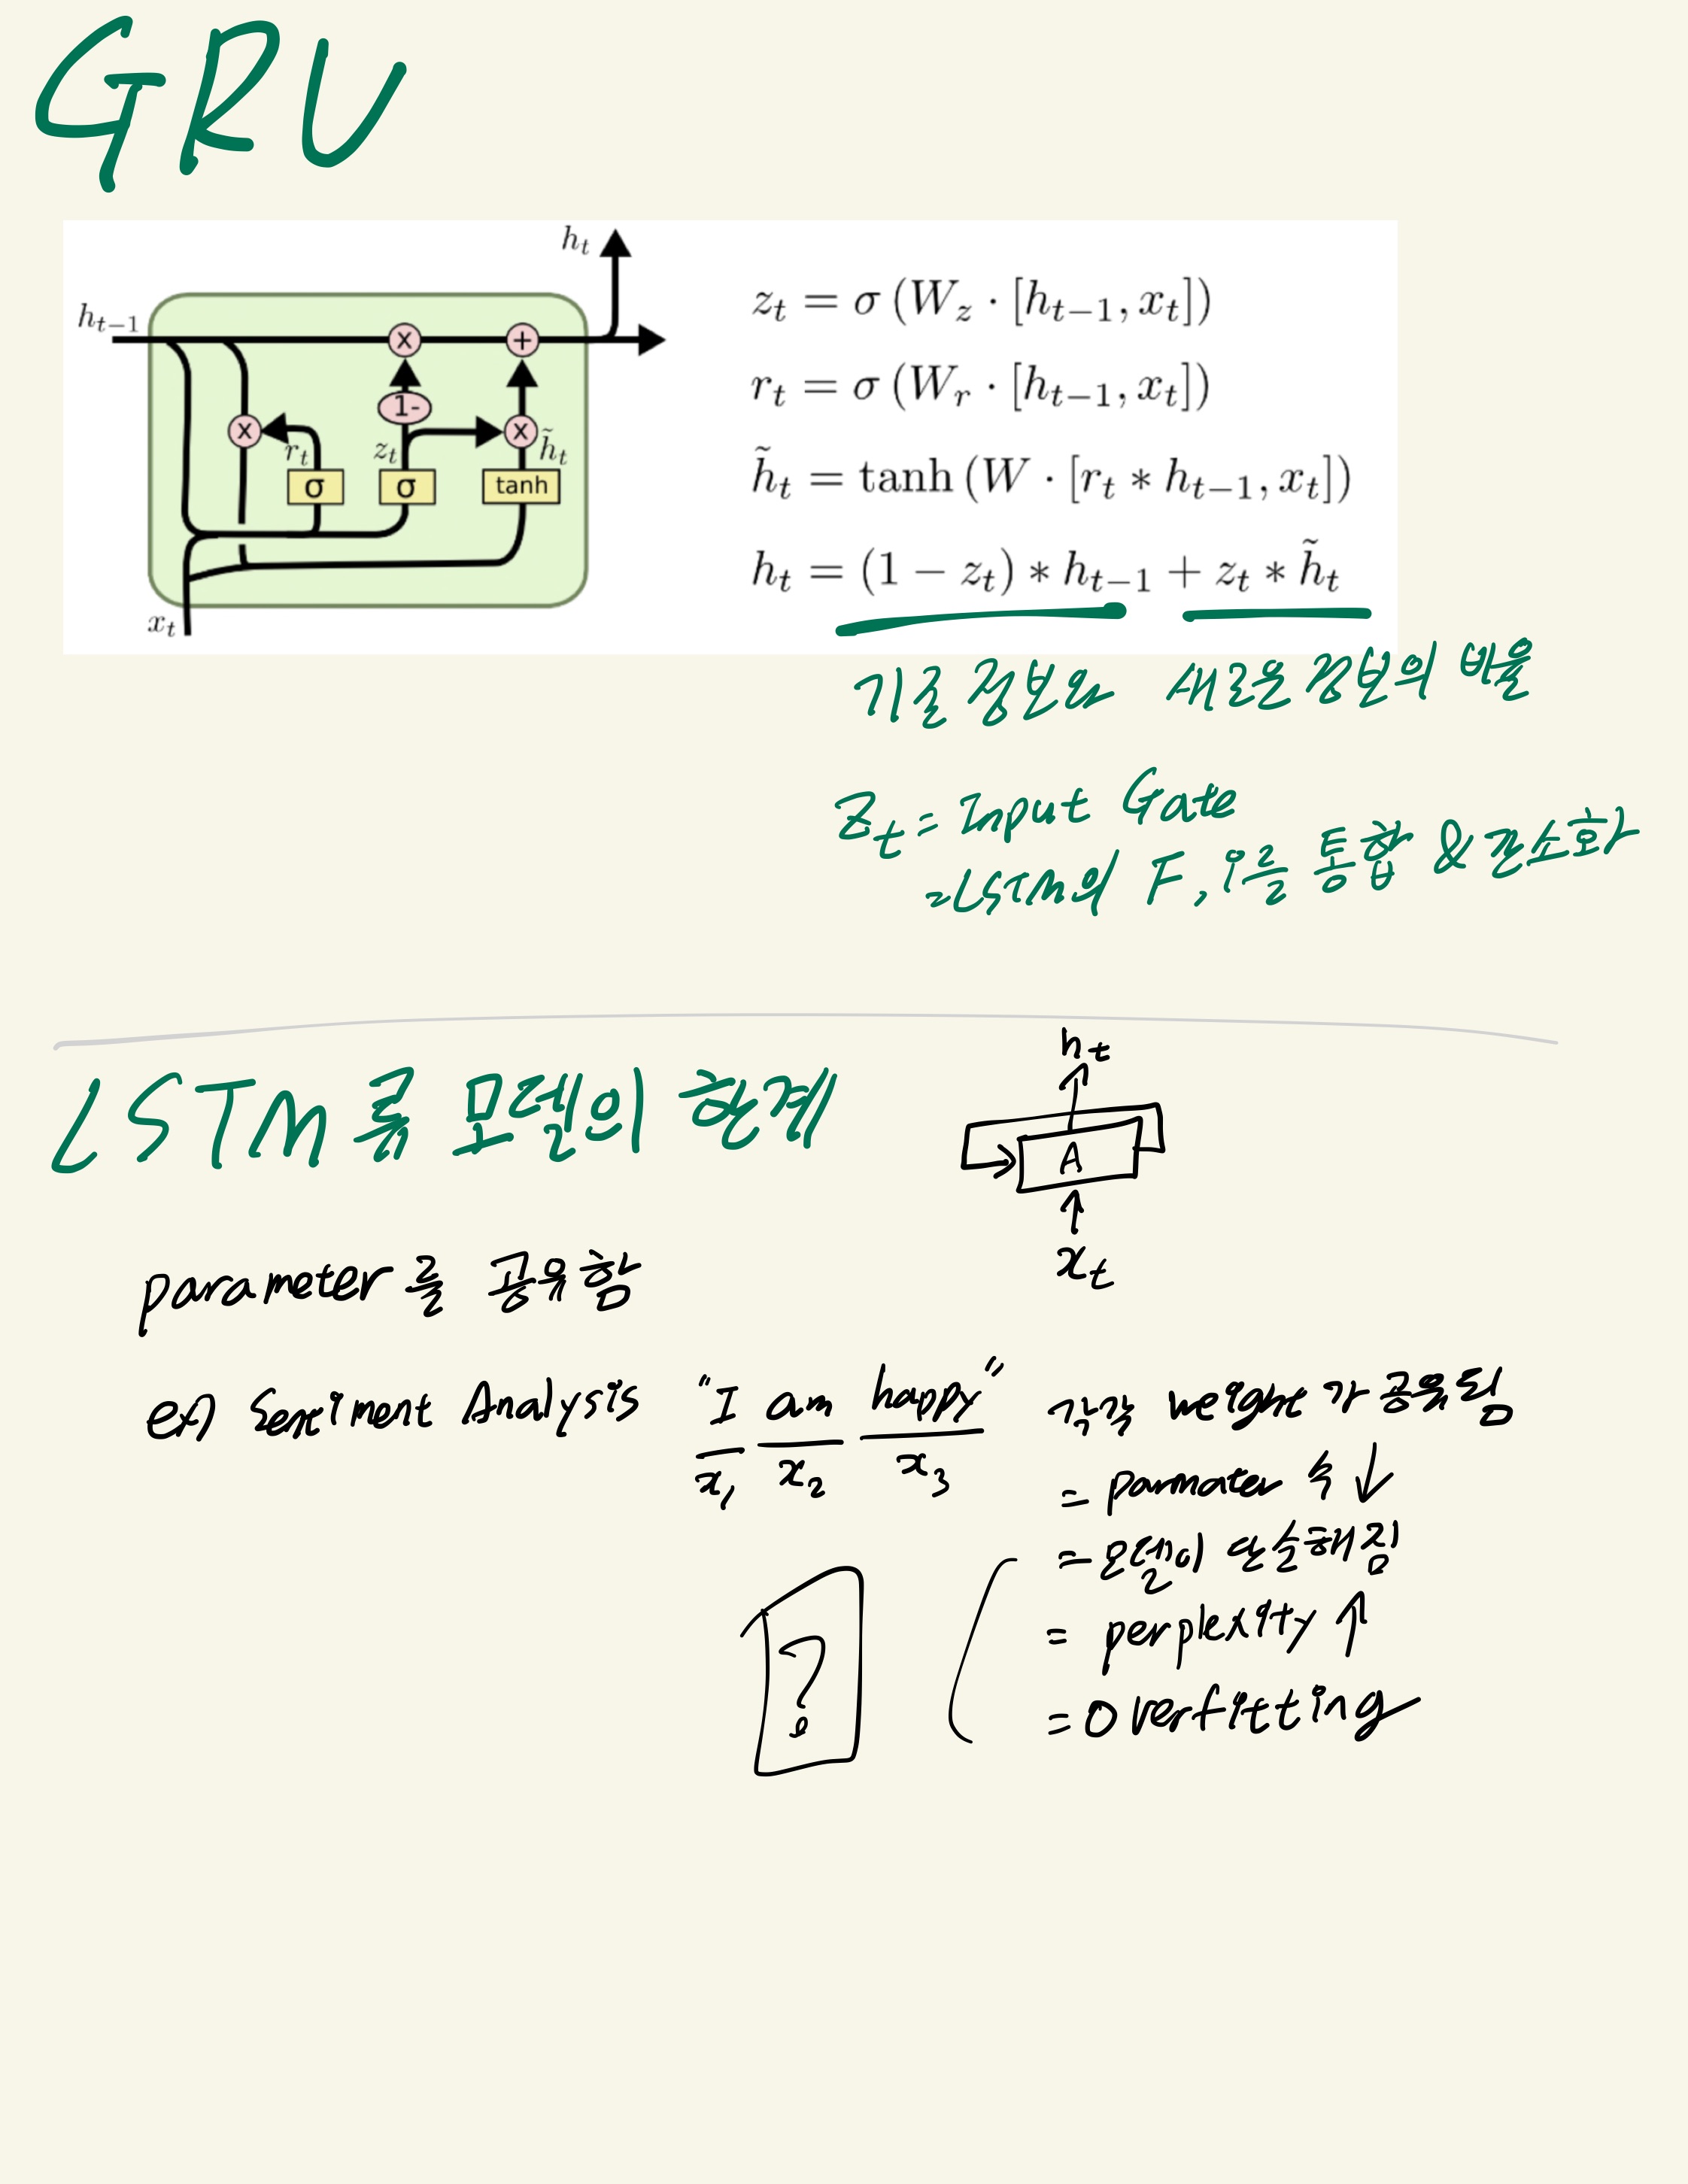 GRU
h_t
h_{t-1}
x
+
1-
x
r_t
z_t
x
h̃_t
σ
σ
tanh
x_t
z_t = σ (W_z · [h_{t-1}, x_t])
r_t = σ (W_r · [h_{t-1}, x_t])
h̃_t = tanh (W · [r_t * h_{t-1}, x_t])
h_t = (1 − z_t) * h_{t-1} + z_t * h̃_t
기존 정보와 새로운 정보의 비율
Z_t = Input Gate
=LSTM의 F, i를 통합 & 간소화
LSTM류 모델의 한계
h_t
A
x_t
parameter를 공유함
ex) Sentiment Analysis "I am happy" 각각 weight가 공유됨
x_1 x_2 x_3
= parmater 수 ↓
= 모델이 단순해짐
= perplexity ↑
= Overfitting
?